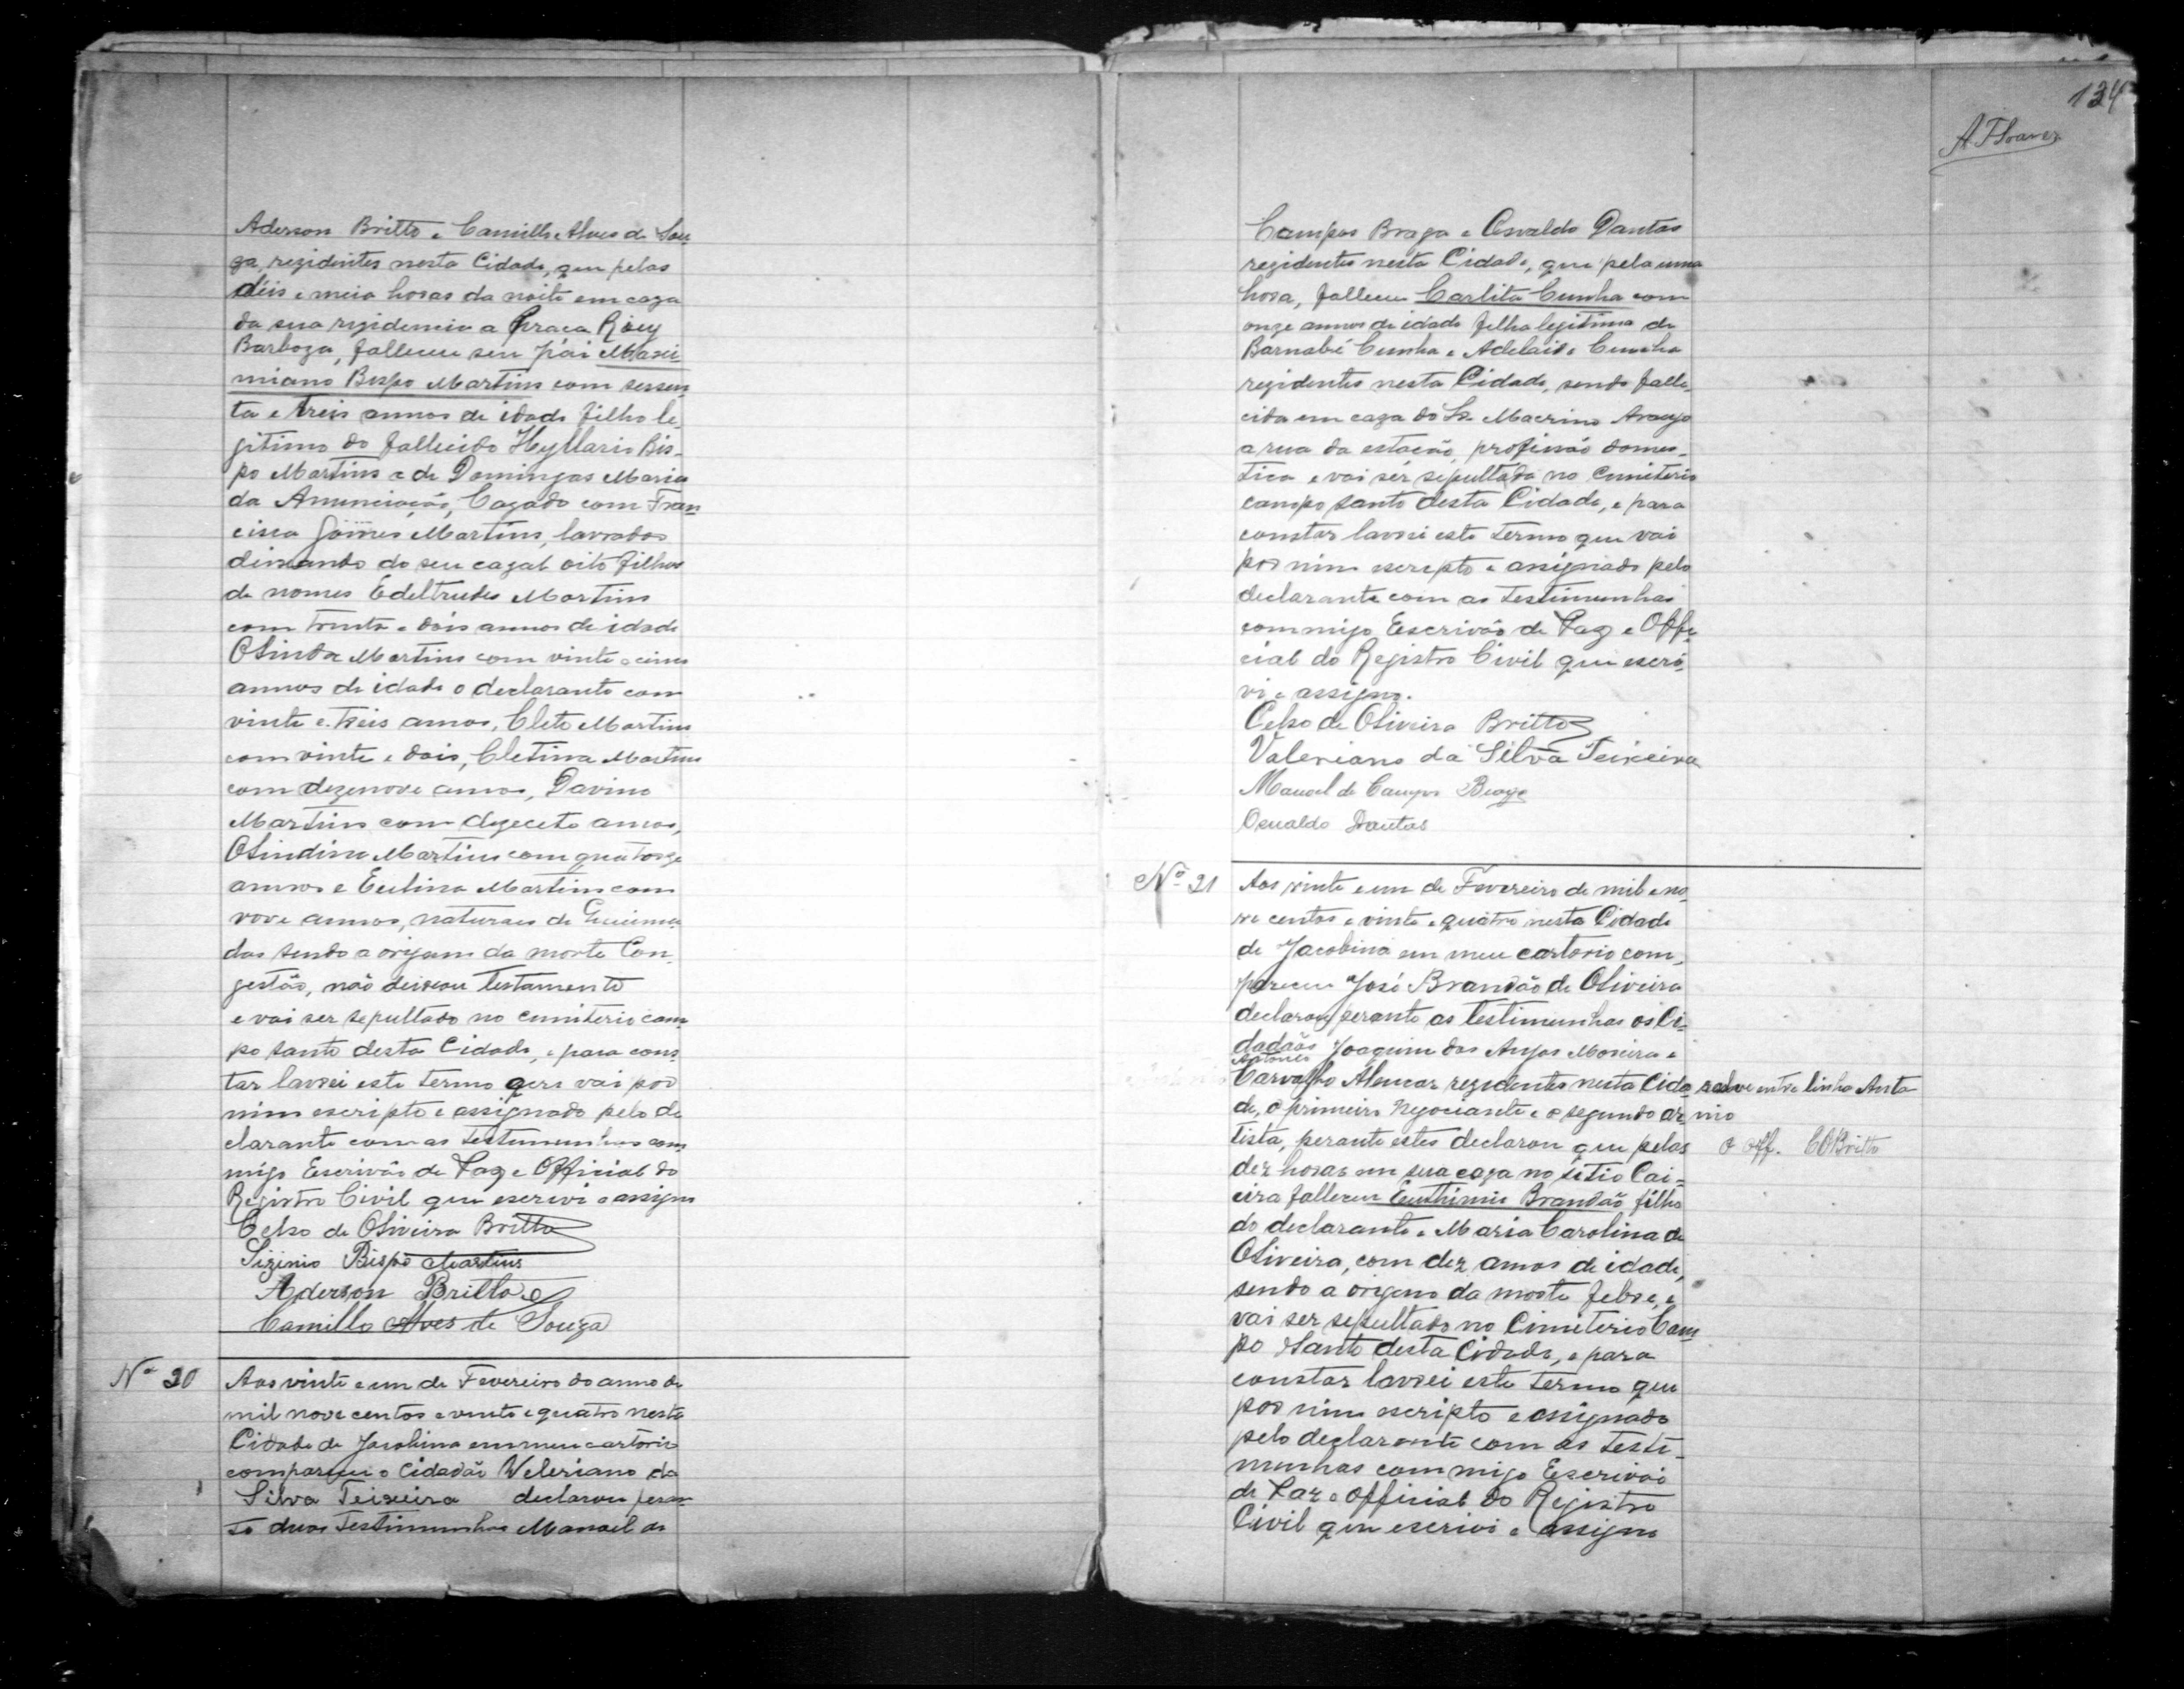 Aderson Britto e Camillo Alves de Sou
za, rezidentes nesta Cidade, que pelas
déis e meia horas da noite em caza
da sua rezidencia a Praca Roey
Barboza, falleceu seu pái Maxi-
miano Bispo Martins com sessen
ta e treis annos de idade filho le-
gitimo do fallecido Hyllario Bis-
po Martins e de Domingas Maria
da Anunciação, Cazado com Fran
cisca Gomes Martins, lavrador
deixando do seu cazal oito filhos
de nomes Edeltrudes Martins
com trinta e dois annos de idade
Olinda Martins com vinte e cinco
annos de idade o declarante com
vinte e treis annos, Cleto Martins
com vinte e dois, Cletina Martins
com dezenove annos, Davino
Martins com dezeceto annos,
Olindina Martins com quatorze
annos e Eulina Martins com
nove annos, naturaes de Queima-
das sendo a origem da morte Con-
gestão, não deixou testamento
e vai ser sepultado no cemiterio cam-
po santo desta Cidade, e para cons
tar lavrei este termo que vai por
mim escripto e assignado pelo de
clarante com as testemunhas com
migo Escrivão de Paz e Official do
Registro Civil que escrivi e assigno
Celso de Oliveira Britto
Sizinio Bispo Martins
Aderson Britto
Camillo Alves de Souza
Nº 20
Aos vinte e um de Fevereiro do anno de
mil nove centos e vinte e quatro nesta
Cidade de Jacobina em meu cartorio
compareceu o Cidadão Veleriano da
Silva Teixeira declarou peran
te duas testimunhas Manoel de
134
A. F. Soares
Campos Braga e Osvaldo Dantas
rezidentes nesta Cidade, que pela uma
hora, falleceu Carlita Cunha com
onze annos de idade filha legitima de
Barnabé Cunha e Adelaide Cunha
rezidentes nesta Cidade, sendo falle-
cida em caza do Sr. Macrino Araujo
a rua da estacão, profissão domes-
tica e vai sér sepultada no Cemiterio
campo santo desta Cidade, e para
constar lavrei este termo que vai
por mim escripto e assignado pelo
declarante com as testimunhas
commigo Escrivão de Paz e Offi-
cial do Registro Civil que escri-
vi e assigno.
Celso de Oliveira Britto
Valeriano da Silva Teixeira
Manoel de Campos Braga
Osvaldo Dantas
Nº 21
Aos vinte e um de Fevereiro de mil e no-
ve centos e vinte e quatro nesta Cidade
de Jacobina em meu cartorio com-
pareceu José Brandão de Oliveira
declarou perante as testimunhas os Ci-
dadãos Joaquim dos Anjos Moreira e
Antonio
Carvalho Alencar rezidentes nesta Cida
salve entre linha Anto
de, o primeiro Negociante e o segundo ar
nio
tista, perante estes declarou que pelas
o off. C O Britto
dez horas em sua caza no sitio Cai-
eira falleceu Eusthimio Brandão filho
do declarante e Maria Carolina de
Oliveira, com dez annos de idade,
sendo a origem da morte febre, e
vai ser sepultado no Cimiterio Cam
po Santo desta Cidade, e para
constar lavrei este termo que
por mim escripto e assignado
pelo declarante com as testi-
munhas commigo Escrivão
de Paz e Official do Registro
Civil que escrivi e assigno